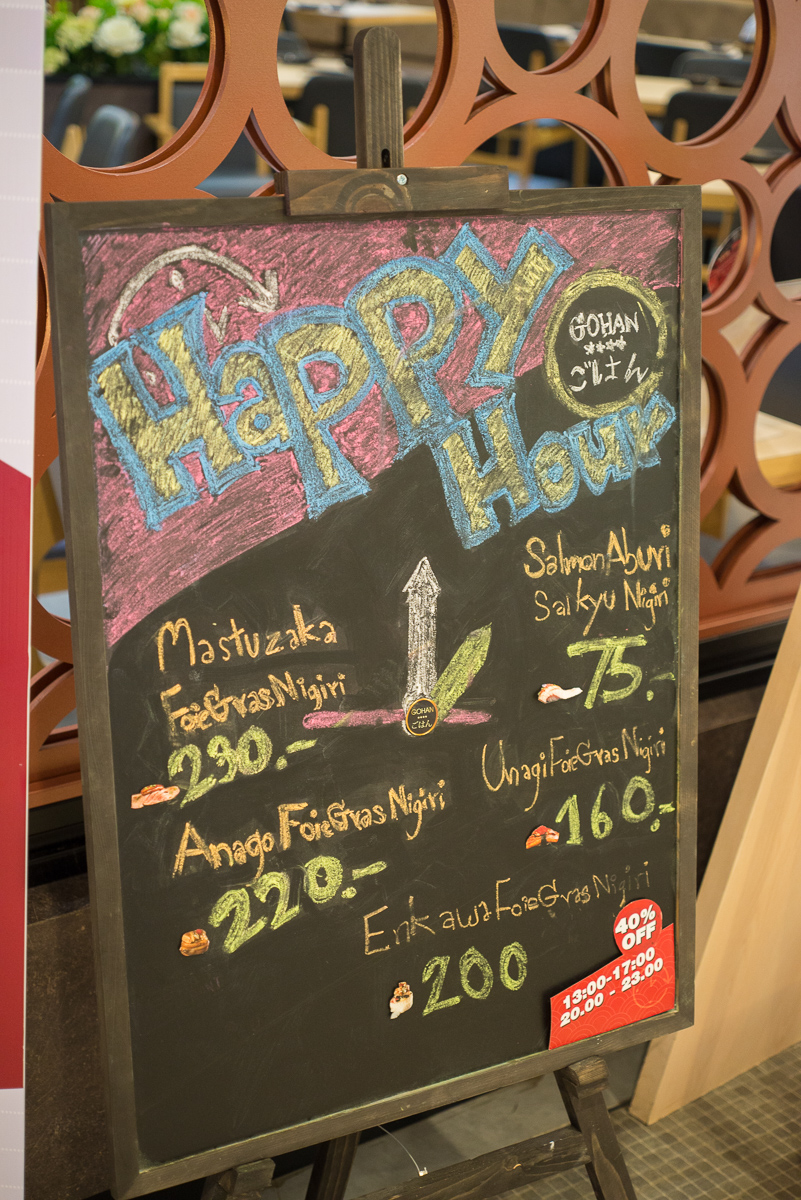 Happy
Hour
GOHAN
****
ごはん
Mastuzaka
FoieGrasNigiri
230.-
Salmon Aburi
Saikyu Nigiri
75.-
GOHAN
ごはん
Anago FoieGras Nigiri
220.-
Unagi FoieGras Nigiri
160.-
Enkawa FoieGras Nigiri
200
40%
OFF
13:00-17:00
20.00 - 23.00